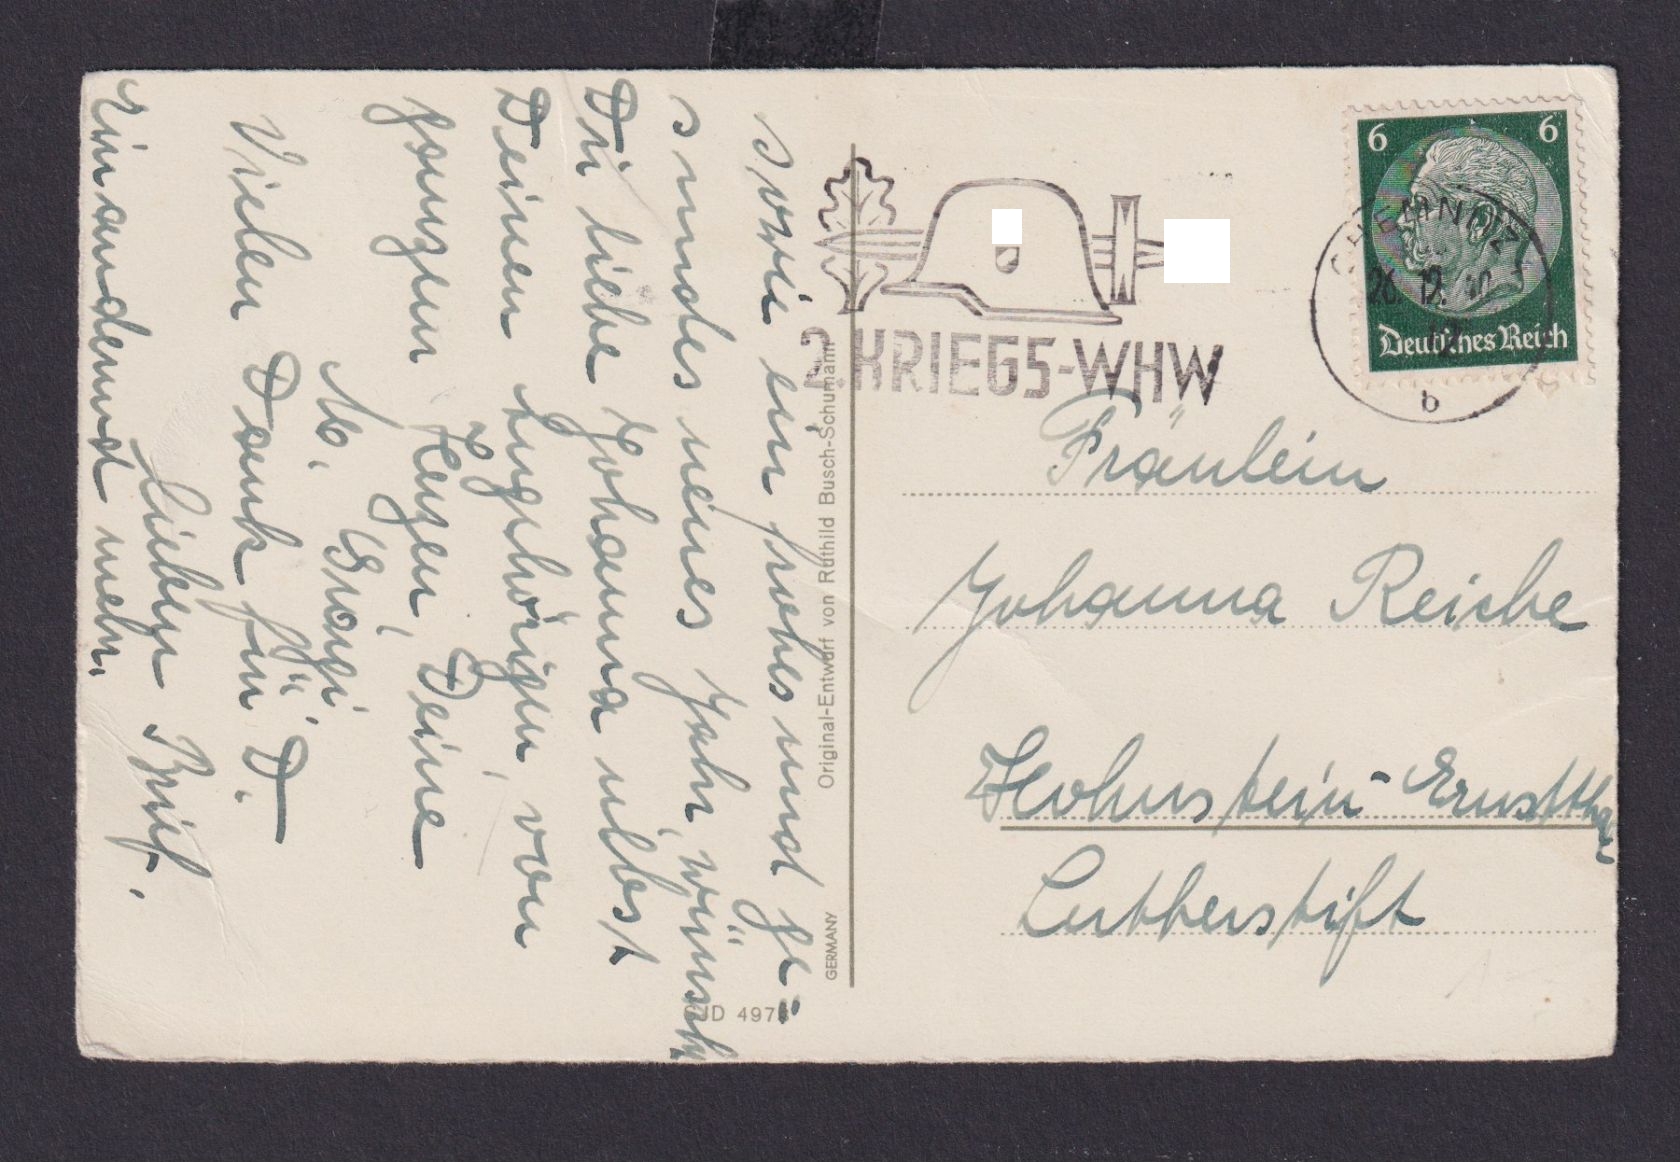 sowie ein frohes und ge-
sundes neues Jahr wünscht
Dir liebe Johanna nebst
Deinen Angehörigen, von
ganzem Herzen, Deine
M. Grägi.
Vielen Dank für D.
lieben Brief.
Original-Entwurf von Ruthild Busch-Schumann
GERMANY
JD 497
2. KRIEGS-WHW
6 6
Deutsches Reich
CHEMNITZ
26.12.40
b
Fräulein
Johanna Reiche
Hohnstein-Ernstthal
Lutherstift